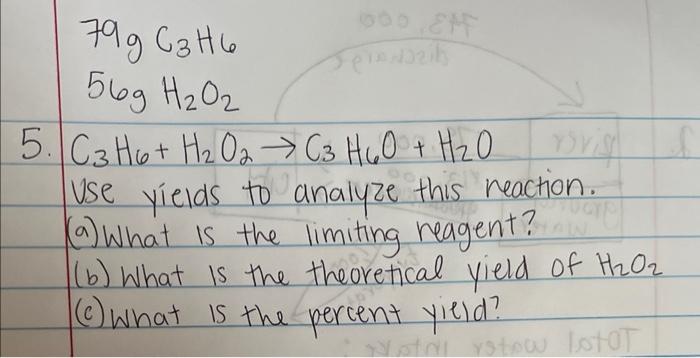 79g C3H6
56g H2O2
5. C3H6 + H2O2 → C3H6O + H2O
Use yields to analyze this reaction.
(a) What is the limiting reagent?
(b) What is the theoretical yield of H2O2
(c) What is the percent yield?